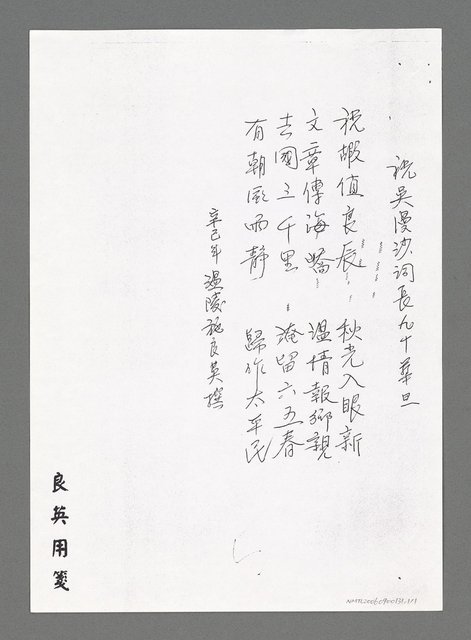 祝吳漫沙詞長九十華旦
祝嘏值良辰 秋光入眼新
文章傳海嶠 溫情報鄉親
去國三千里 淹留六五春
有朝風雨靜 歸作太平民
辛巳年 溫陵施良英撰
良英用箋
NMTL20060900131.1/1